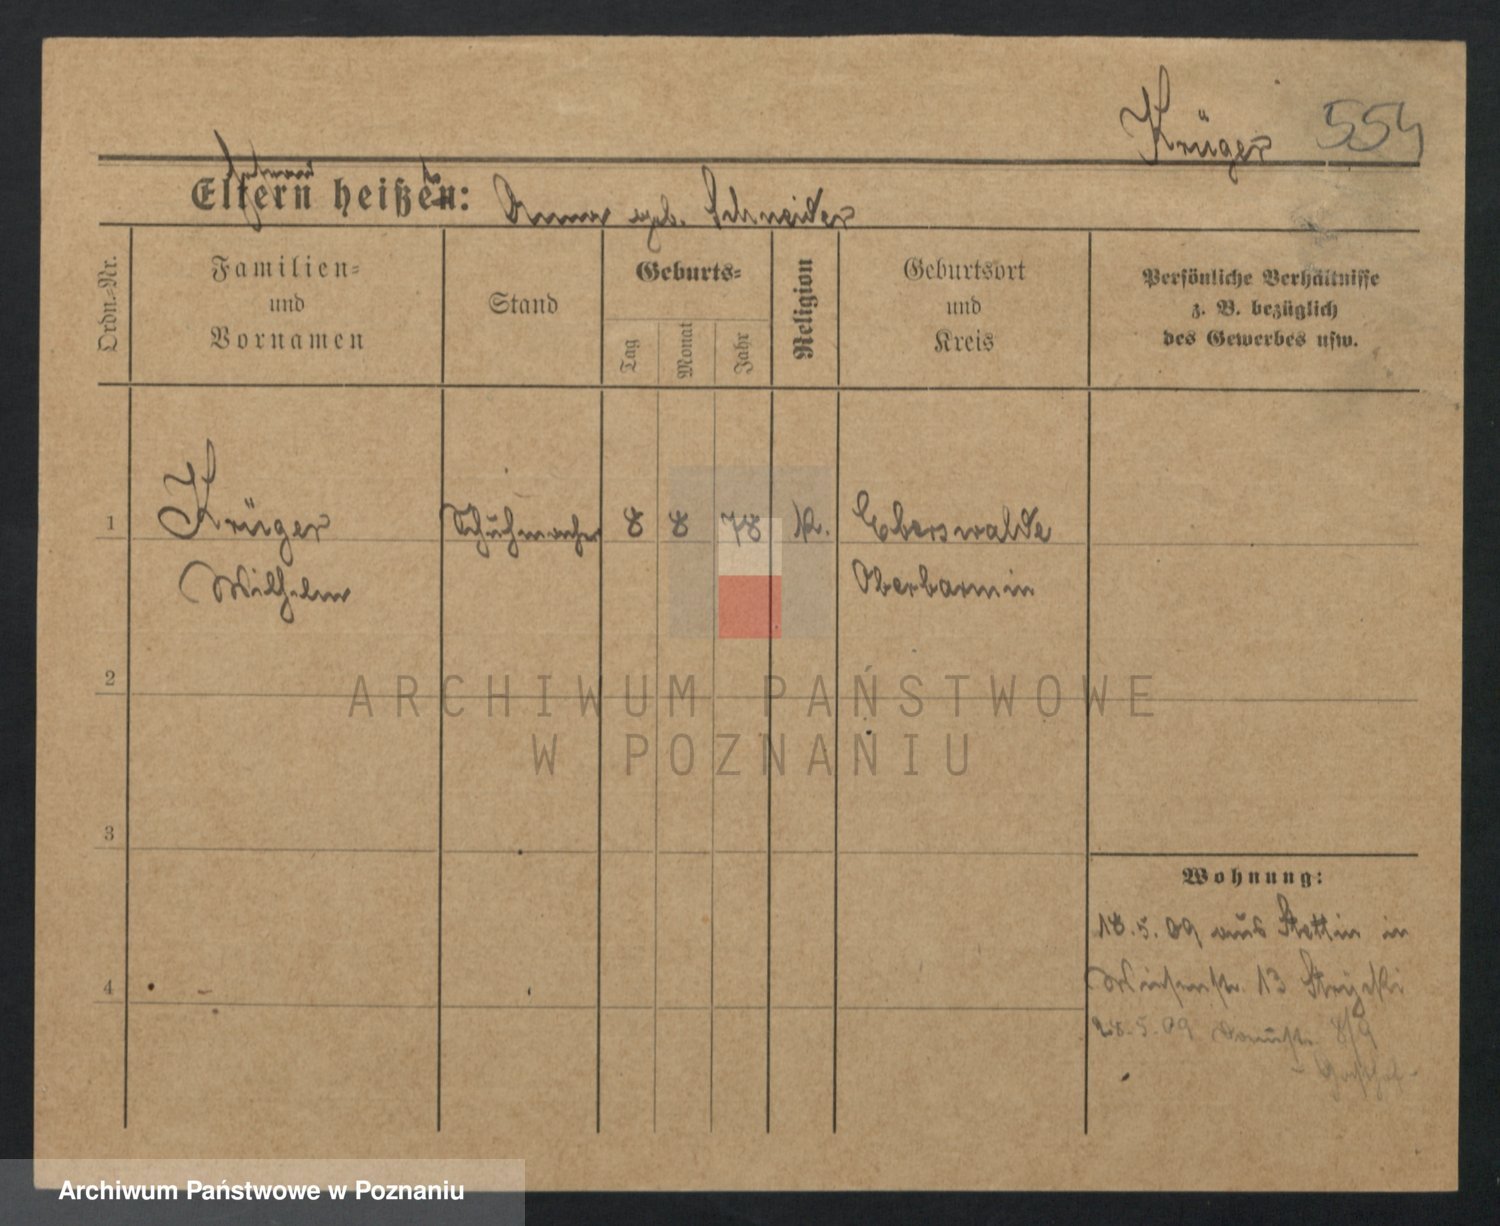 Krüger 554
Eltern heißen: Anna geb. Schneider
Ordn.-Nr.
Familien-
und
Vornamen
Stand
Geburts-
Tag
Monat
Jahr
Religion
Geburtsort
und
Kreis
Persönliche Verhältnisse
z. B. bezüglich
des Gewerbes usw.
1 Krüger Schuhmacher 8 8 78 k. Eberswalde
Wilhelm Oberbarnim
2
3
4
Wohnung:
18.5.09 aus Stettin in
Wiesenstr. 13
28.5.09 8/9
ARCHIWUM PAŃSTWOWE
W POZNANIU
Archiwum Państwowe w Poznaniu